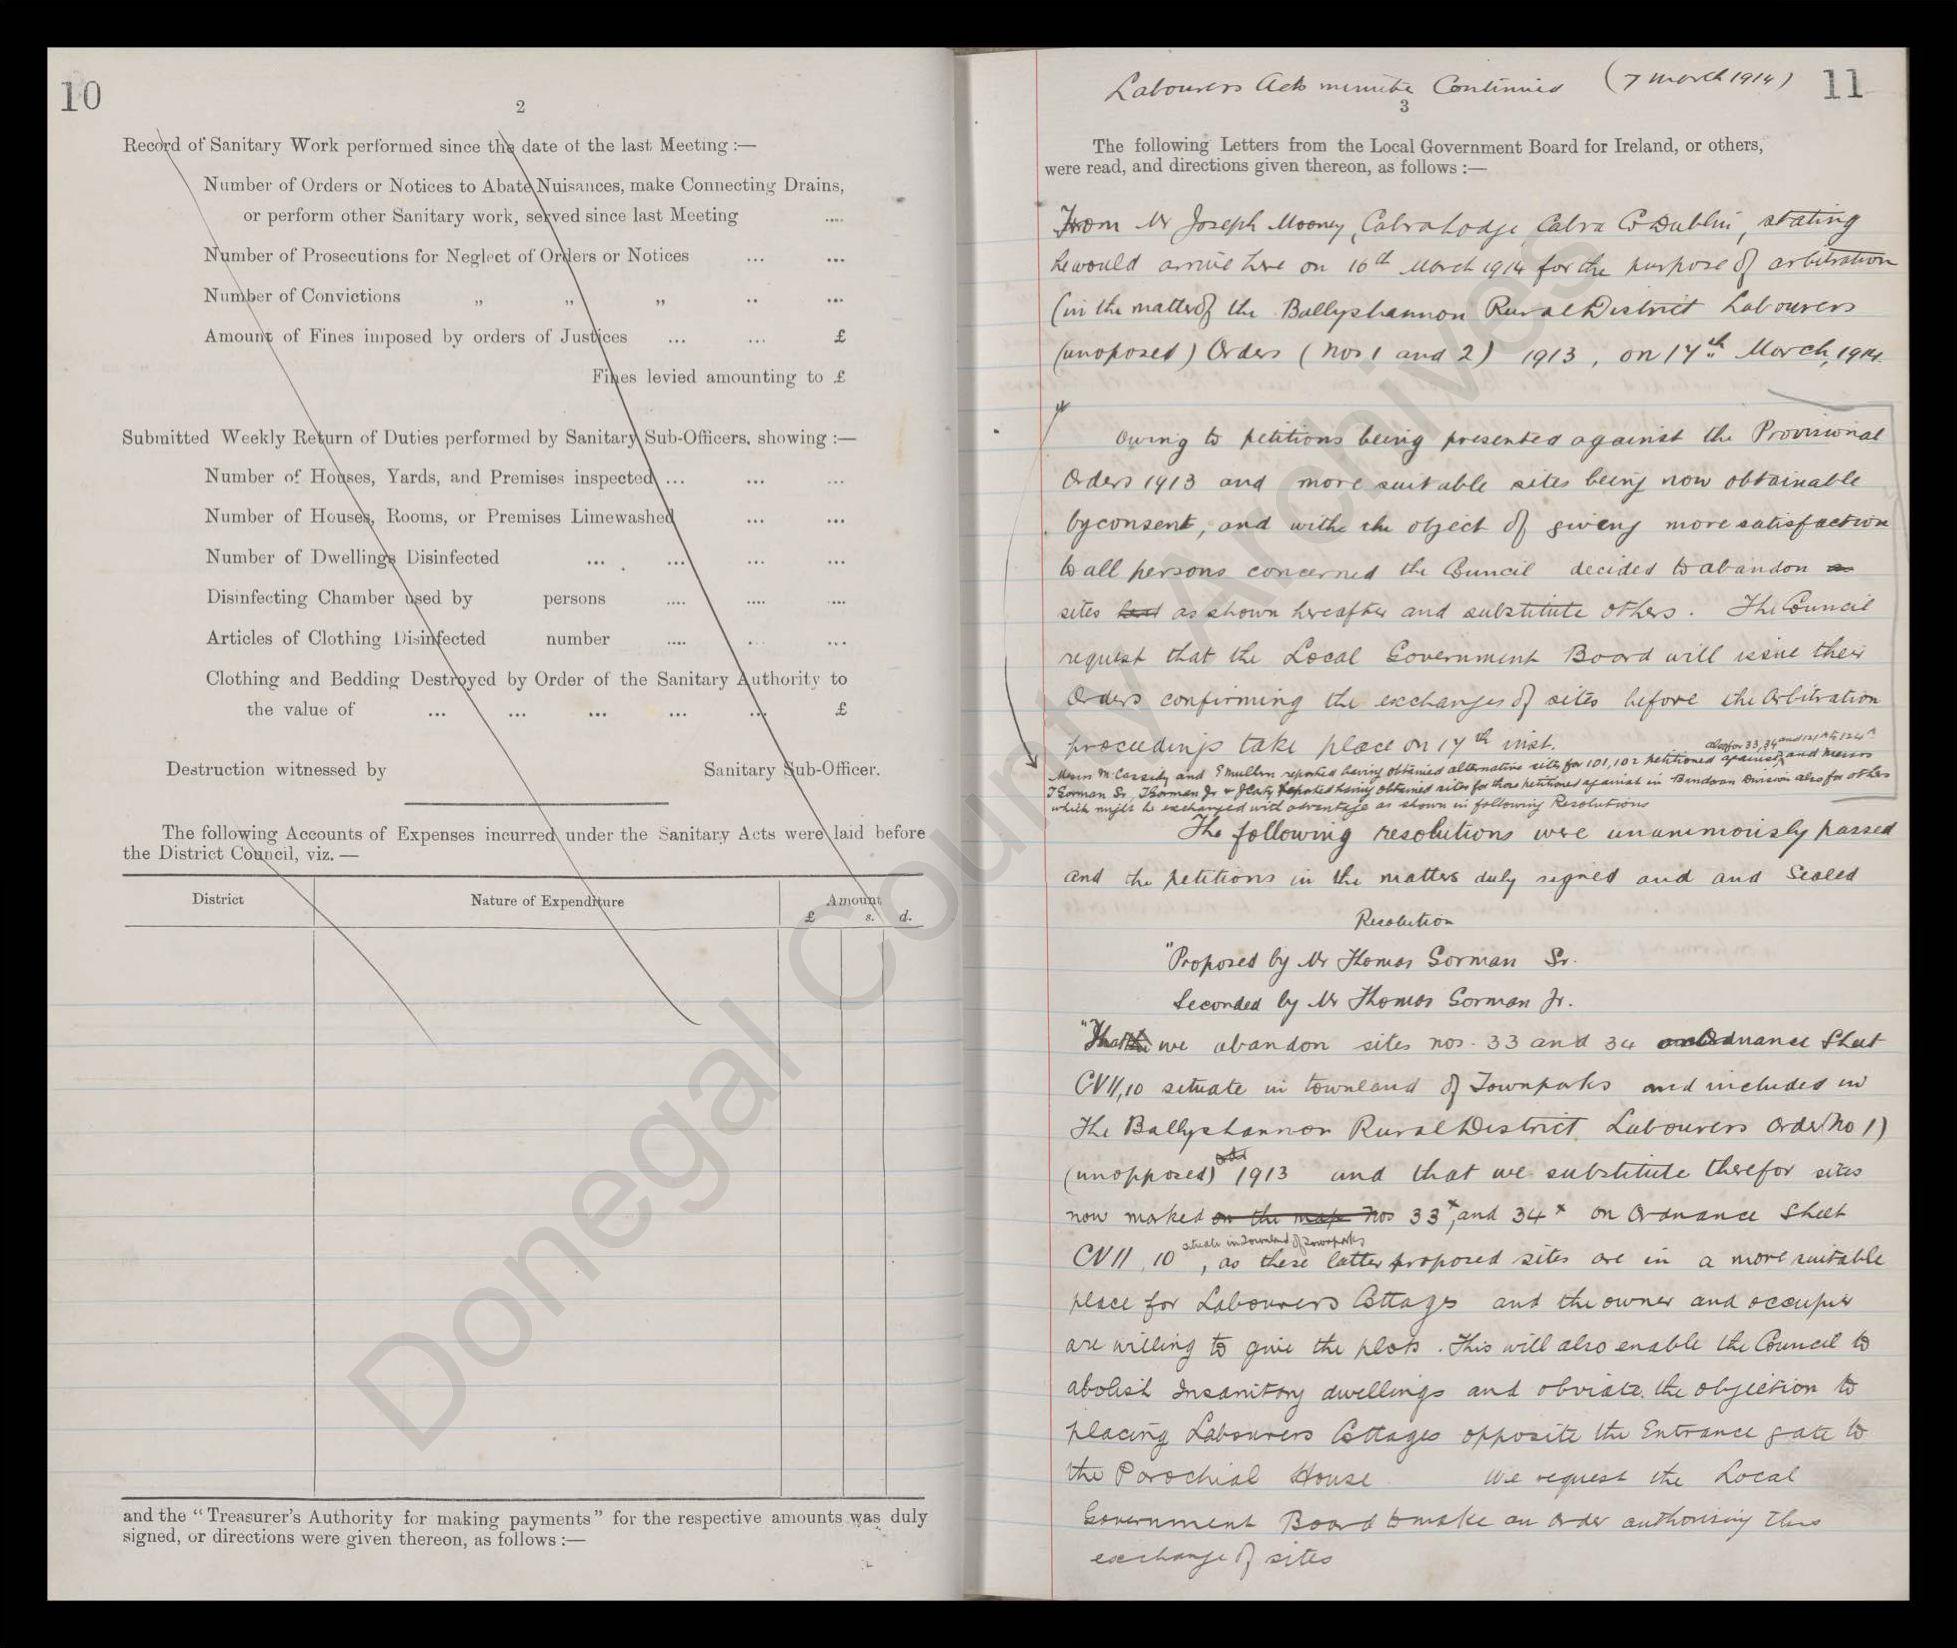 10
2
Record of Sanitary Work performed since the date of the last Meeting :—
Number of Orders or Notices to Abate Nuisances, make Connecting Drains,
or perform other Sanitary work, served since last Meeting ....
Number of Prosecutions for Neglect of Orders or Notices ... ...
Number of Convictions „ „ „ .. ...
Amount of Fines imposed by orders of Justices ... ... £
Fines levied amounting to £
Submitted Weekly Return of Duties performed by Sanitary Sub-Officers, showing :—
Number of Houses, Yards, and Premises inspected ... ... ...
Number of Houses, Rooms, or Premises Limewashed ... ...
Number of Dwellings Disinfected ... ... ... ...
Disinfecting Chamber used by persons .... .... ....
Articles of Clothing Disinfected number .... ... ...
Clothing and Bedding Destroyed by Order of the Sanitary Authority to
the value of ... ... ... ... ... £
Destruction witnessed by Sanitary Sub-Officer.
The following Accounts of Expenses incurred under the Sanitary Acts were laid before
the District Council, viz. —
District Nature of Expenditure Amount
£ s. d.
and the “Treasurer's Authority for making payments” for the respective amounts was duly
signed, or directions were given thereon, as follows :—
Labourers Acts minute Continued (7 March 1914) 11
3
The following Letters from the Local Government Board for Ireland, or others,
were read, and directions given thereon, as follows :—
From Mr Joseph Mooney, Cabra Lodge, Cabra Co Dublin, stating
he would arrive here on 16th March 1914 for the purpose of arbitration
(in the matter of the Ballyshannon Rural District Labourers
(unoposed) Orders (Nos 1 and 2) 1913, on 17th March, 1914.
Owing to petitions being presented against the Provisional
Orders 1913 and more suitable sites being now obtainable
by consent, and withe the object of giving more satisfaction
to all persons concerned the Council decided to abandon
sites as shown hereafter and substitute others. The Council
request that the Local Government Board will issue their
Orders confirming the exchanges of sites before the Arbitration
proceedings take place on 17th inst.
also for 33, 34 and 121A to 124A
Messrs M. Cassidy and E Mullin reported having obtained alternative sites for 101, 102 petitioned against, and Messrs
T Gorman Sr, T Gorman Jr & reported having obtained sites for those petitioned against in Bundoran Division also for others
which might be exchanged with advantage as shown in following Resolutions
The following resolutions were unanimously passed
and the petitions in the matters duly signed and and Sealed
Resolution
"Proposed by Mr Thomas Gorman Sr.
Seconded by Mr Thomas Gorman Jr.
"That we abandon sites nos. 33 and 34 on Ordnance Sheet
CVII, 10 situate in townland of Townparks and included in
The Ballyshannon Rural District Labourers Order (No 1)
(unopposed) 1913 and that we substitute therefor sites
now marked on the map Nos 33x, and 34x on Ordnance Sheet
situate in Townland of Townparks
CVII, 10, as these latter proposed sites are in a more suitable
place for Labourers Cottages and the owner and occupier
are willing to give the plots. This will also enable the Council to
abolish Insanitary dwellings and obviate the objection to
placing Labourers Cottages opposite the Entrance gate to
the Parochial House We request the Local
Government Board to make an Order authorising this
exchange of sites
Donegal County Archives